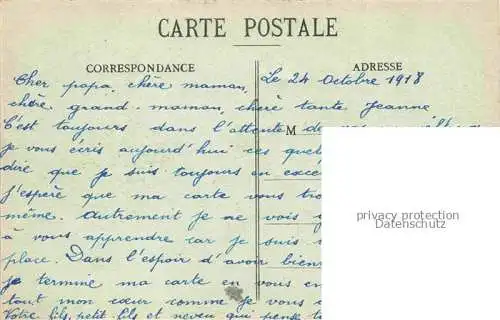 CARTE POSTALE
CORRESPONDANCE
ADRESSE
Le 24 Octobre 1918
Cher papa, chère maman,
chère grand-maman, chère tante Jeanne
C'est toujours dans l'attente de
M
je vous écris aujourd'hui ces quel
dire que je suis toujours en exce
J'espère que ma carte vous tro
même. Autrement je ne vois
à vous apprendre car je suis
place. Dans l'espoir d'avoir bien
je termine ma carte en vous en
tout mon cœur comme je vous
Votre fils, petit-fils et neveu qui pense
privacy protection
Datenschutz